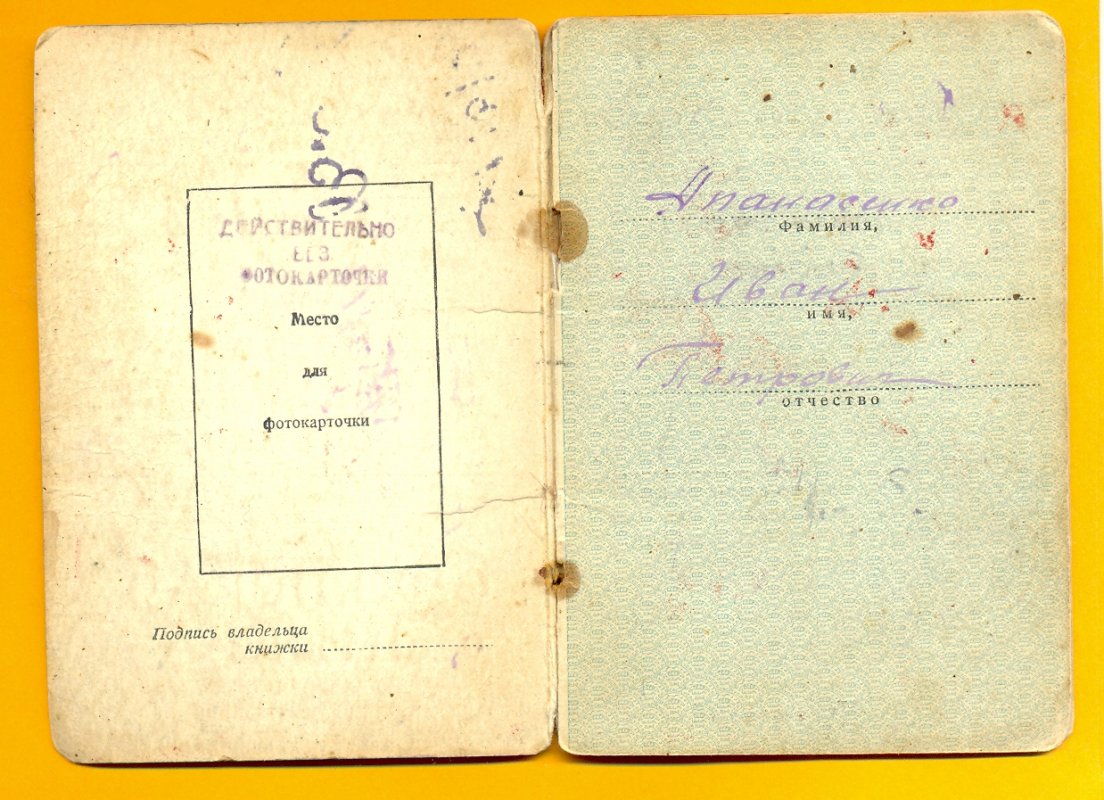 ДЕЙСТВИТЕЛЬНО
БЕЗ
ФОТОКАРТОЧКИ
Место
для
фотокарточки
Подпись владельца
книжки
Апанасенко
Фамилия,
Иван
имя,
Петрович
отчество